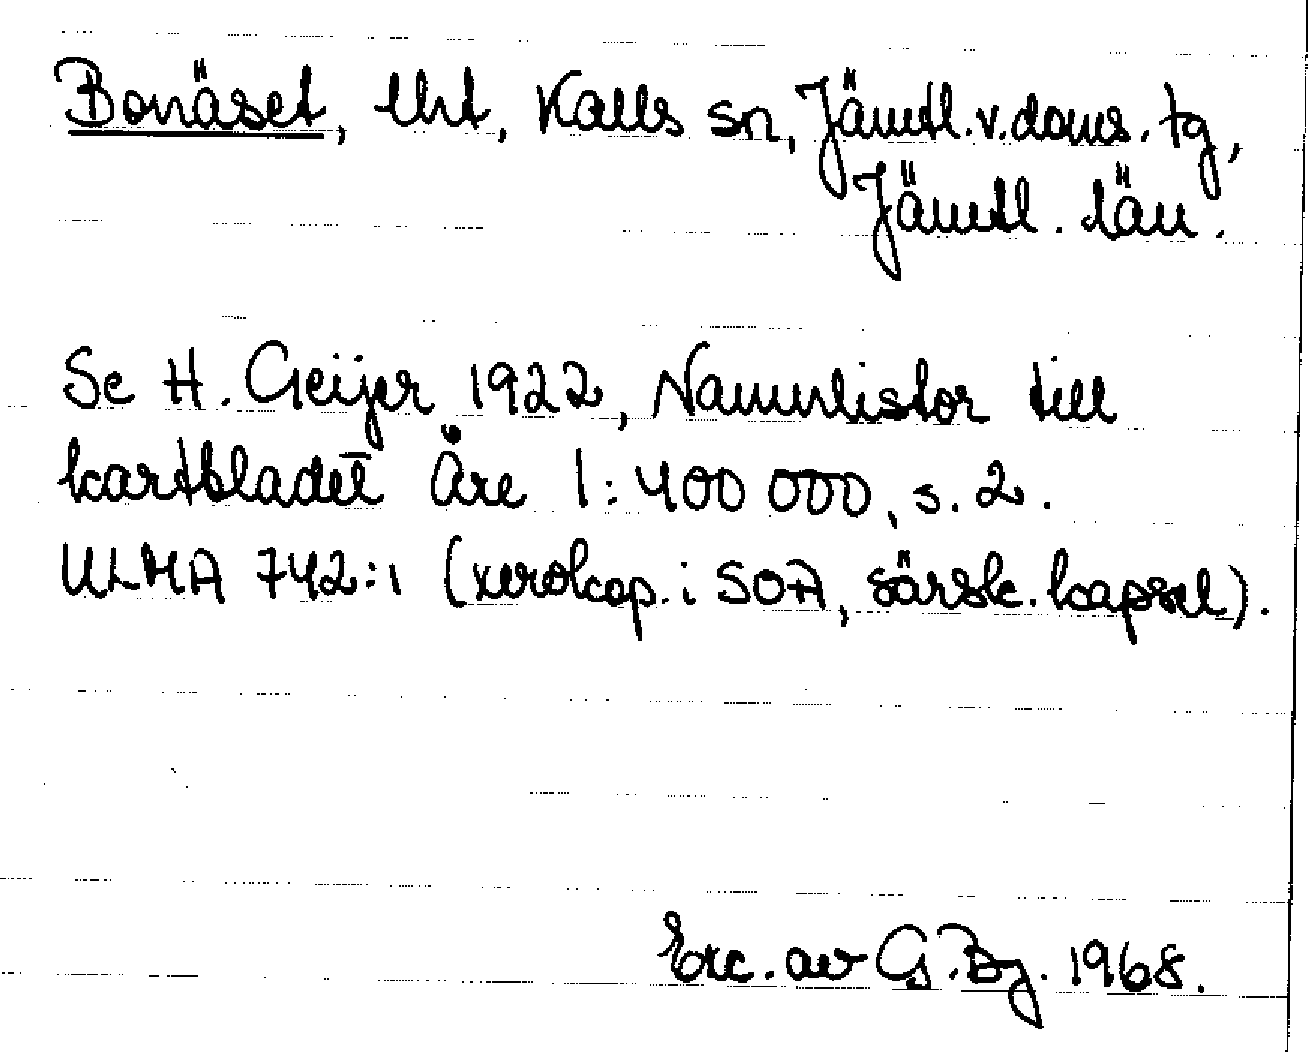 Bonäset, tht, Kalls sn, Jämtl. v. doms. tg,
Jämtl. län.
Se H. Geijer 1922, Namnlistor till
kartbladet Åre 1:400 000, s. 2.
ULMA 742:1 (xerokop. i SOA, särsk. kapsel).
Exc. av G. Bg. 1968.